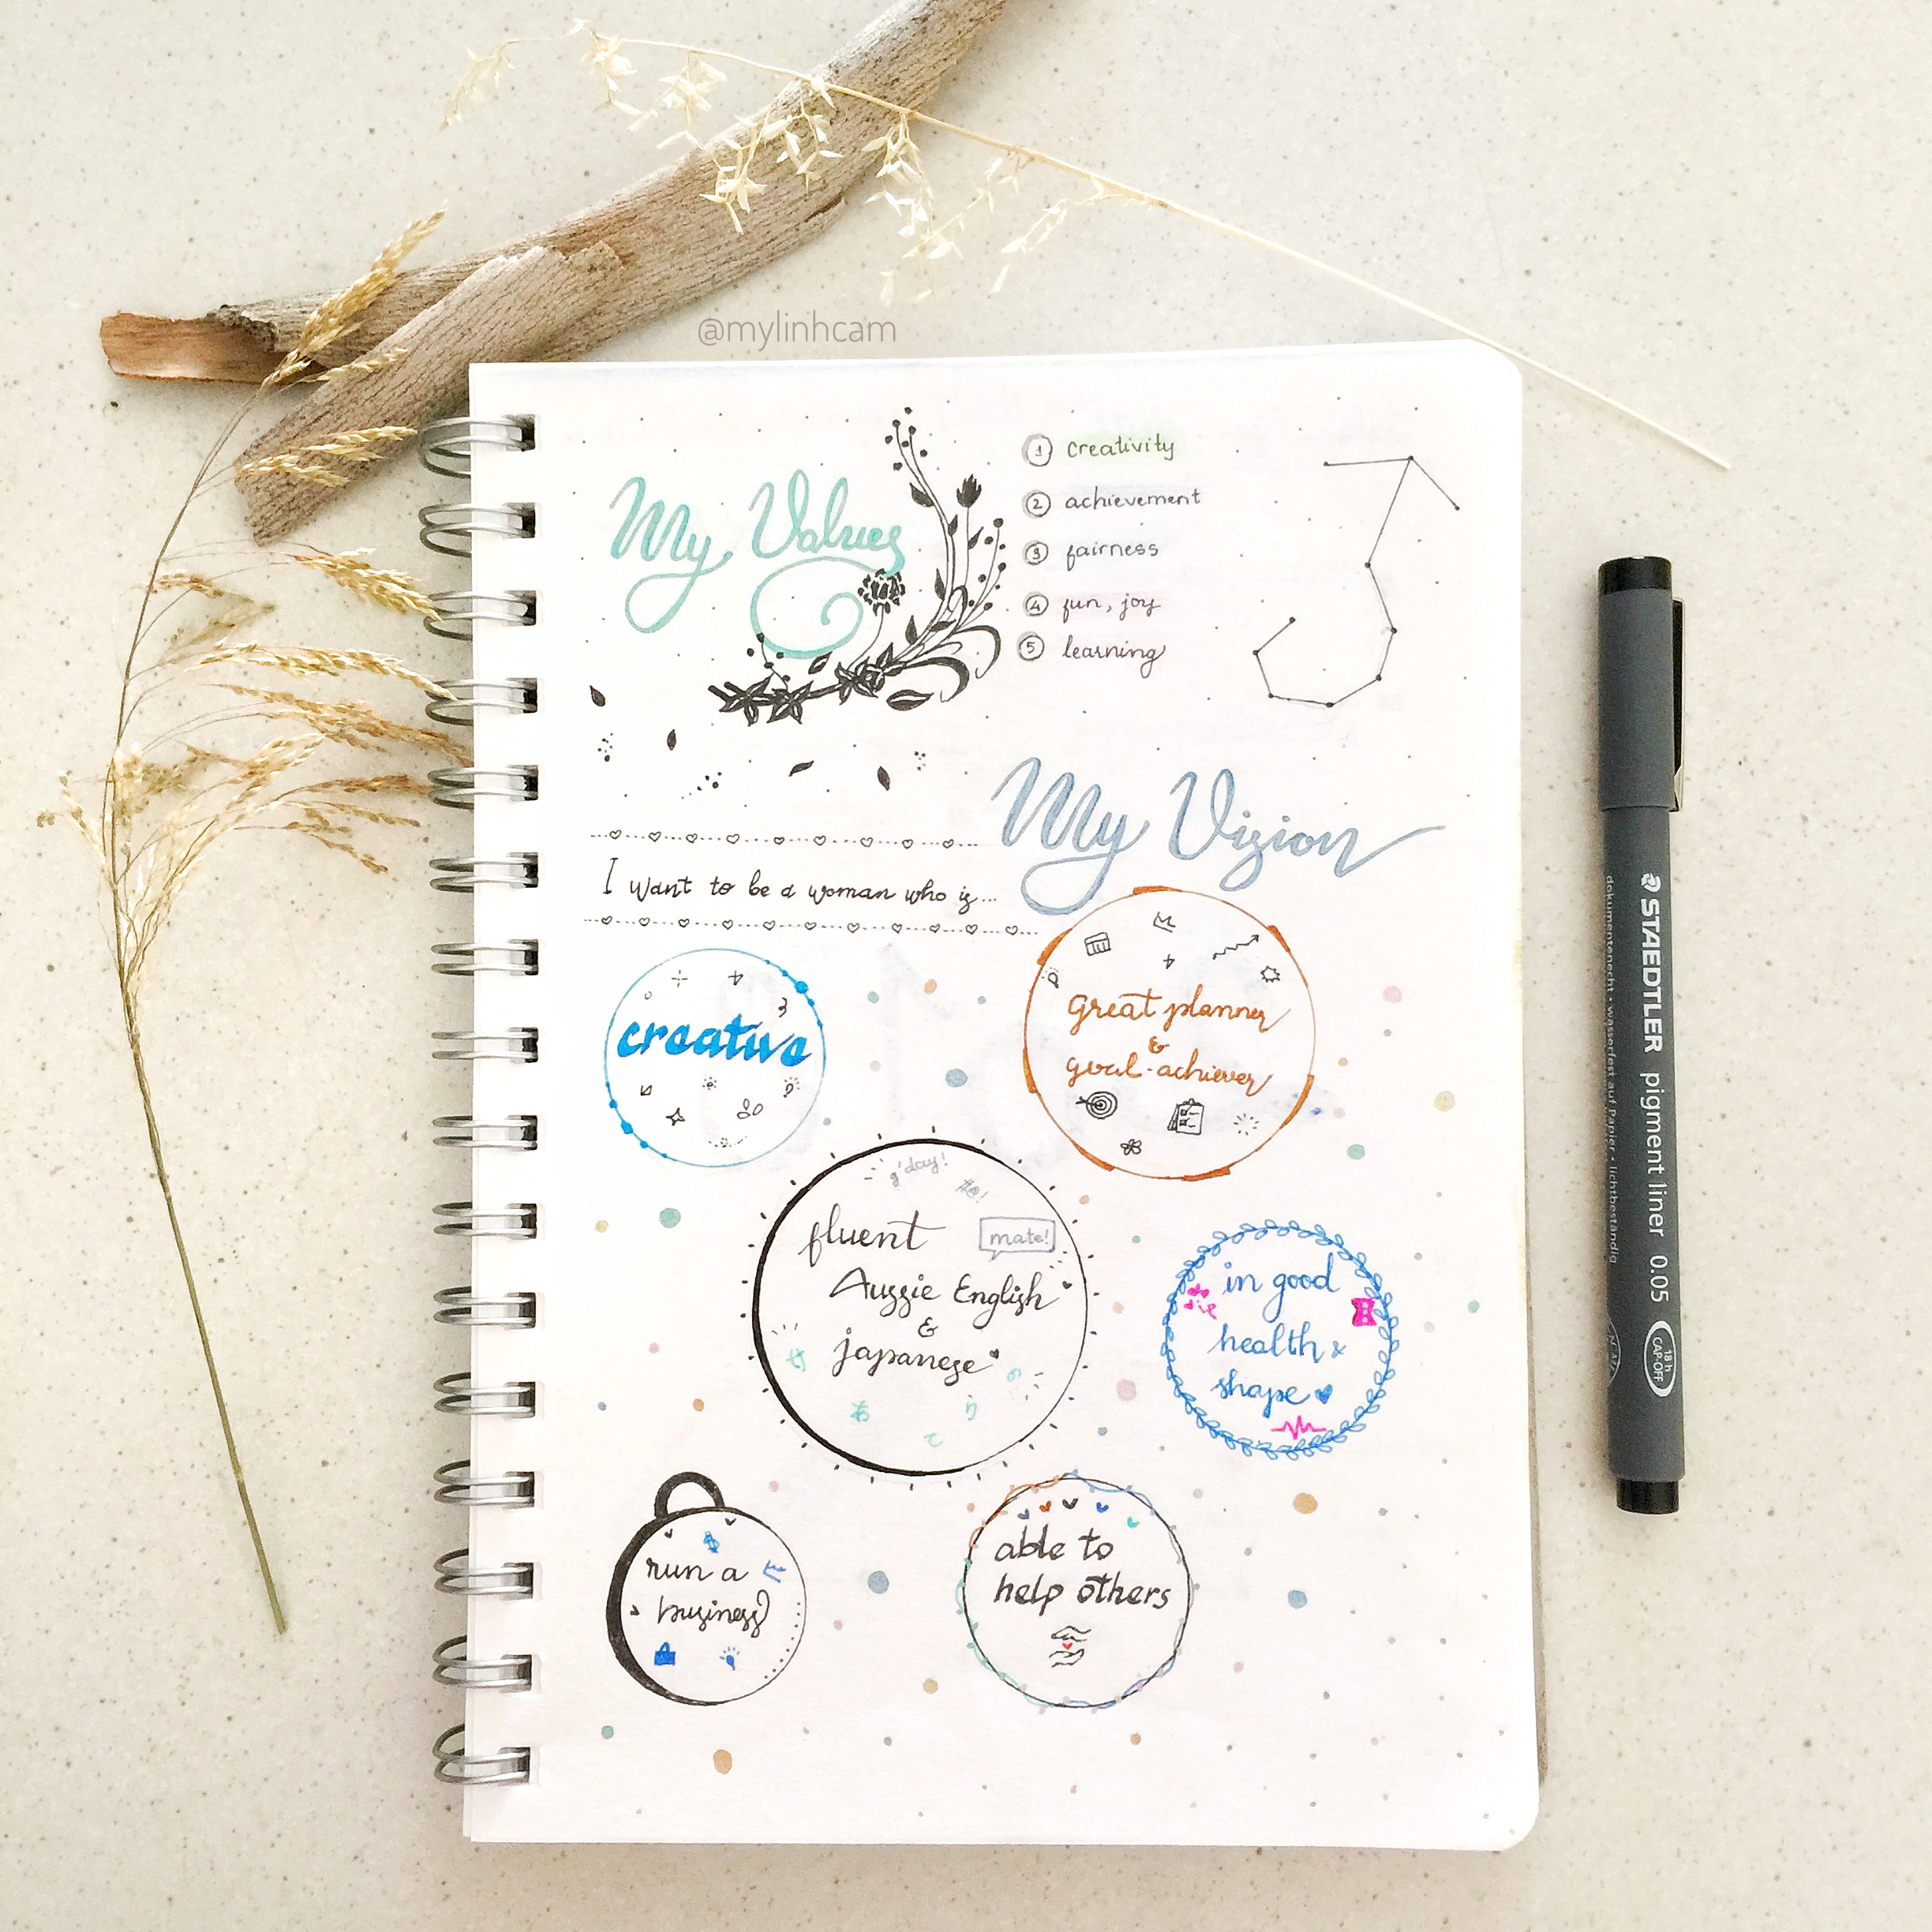 @mylinhcam
My Values
1 creativity
2 achievement
3 fairness
4 fun, joy
5 learning
My Vision
I want to be a woman who is...
creative
great planner
&
goal-achiever
g'day!
mate!
fluent
Aussie English
&
japanese
in good
health &
shape
run a
business
able to
help others
STAEDTLER pigment liner 0.05
dokumentenecht · wasserfest auf Papier · lichtbeständig
18 h
CAP-OFF